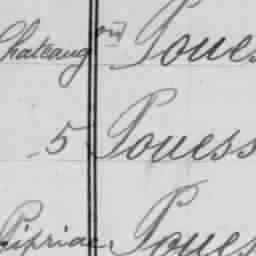 Chateaug on Poues
5 Pouess
Pipriac Poues